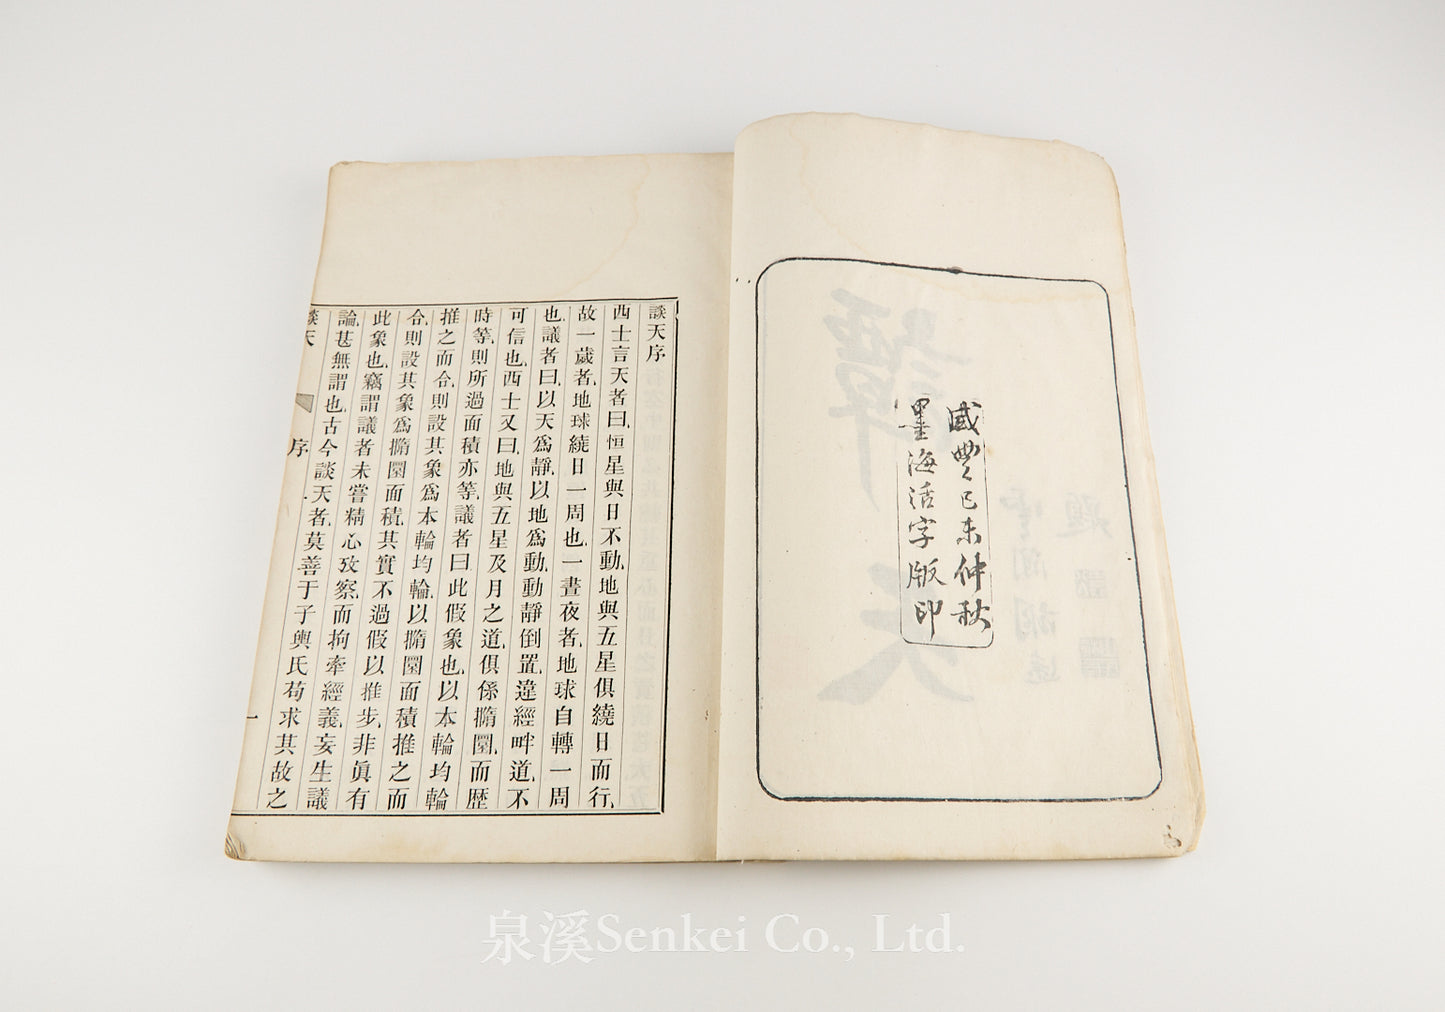 咸豐己未仲秋
墨海活字版印
談天序
西士言天者曰、恒星與日不動、地與五星俱繞日而行、
故一歲者、地球繞日一周也、一晝夜者、地球自轉一周
也、議者曰、以天爲靜、以地爲動、動靜倒置、違經畔道、不
可信也、西士又曰、地與五星及月之道、俱係撱圜、而歴
時等、則所過面積亦等、議者曰、此假象也、以本輪均輪
推之而合、則設其象爲本輪均輪、以撱圜面積推之而
合、則設其象爲撱圜面積、其實不過假以推步、非眞有
此象也、竊謂議者未嘗精心攷察、而拘牽經義、妄生議
論、甚無謂也、古今談天者、莫善于子輿氏苟求其故之
談天
序
一
泉溪Senkei Co., Ltd.